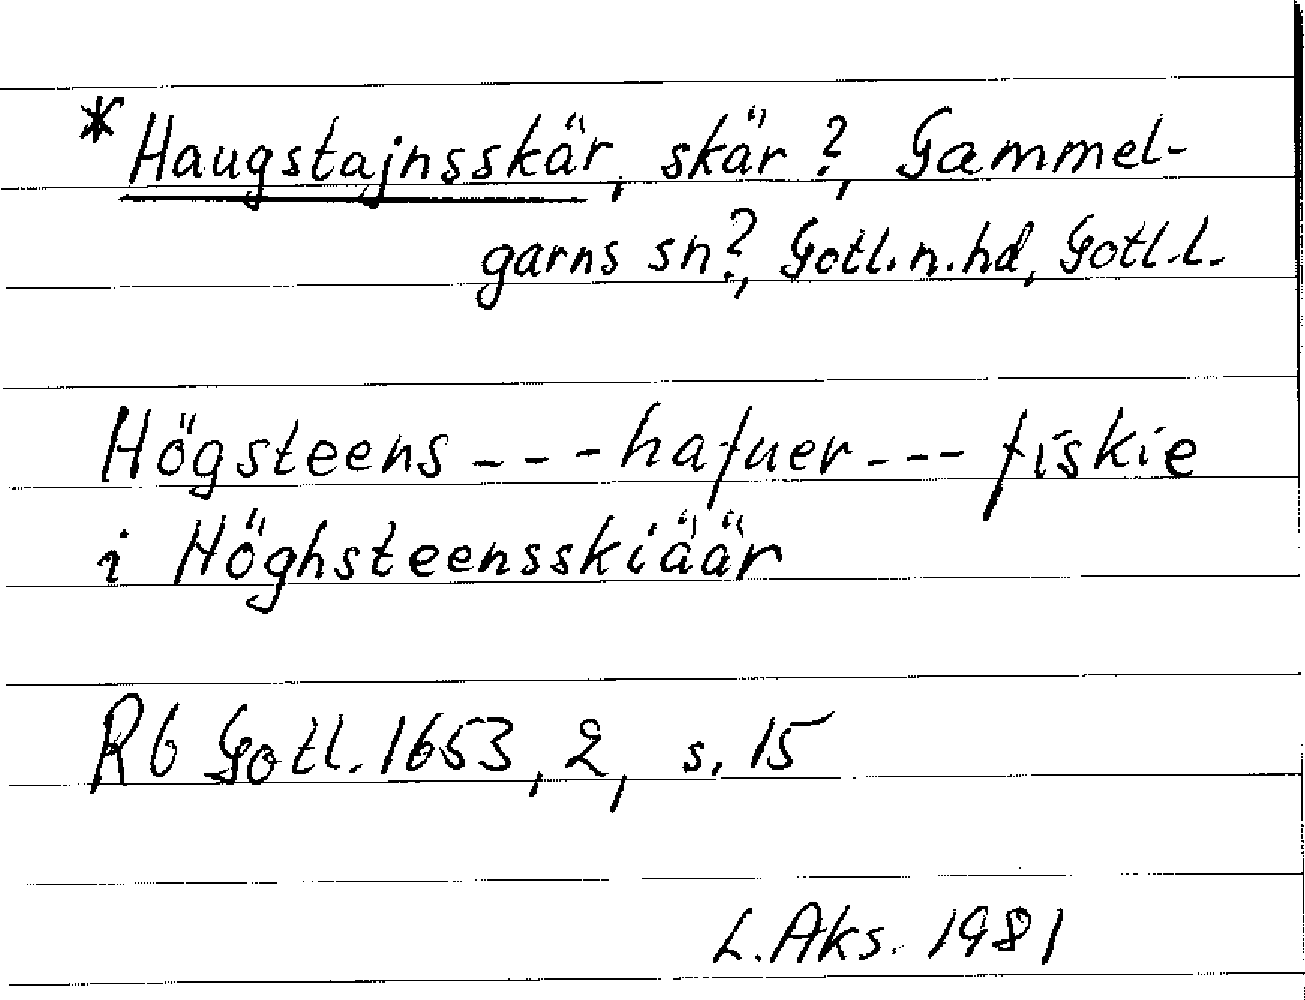 *Haugstajnsskär, skär?, Gammel-
garns sn?, Gotl.n.hd, Gotl.l.
Högsteens - - - hafuer - - - fiskie
i Höghsteensskiäär
Rb Gotl. 1653, 2, s. 15
L. Aks. 1981